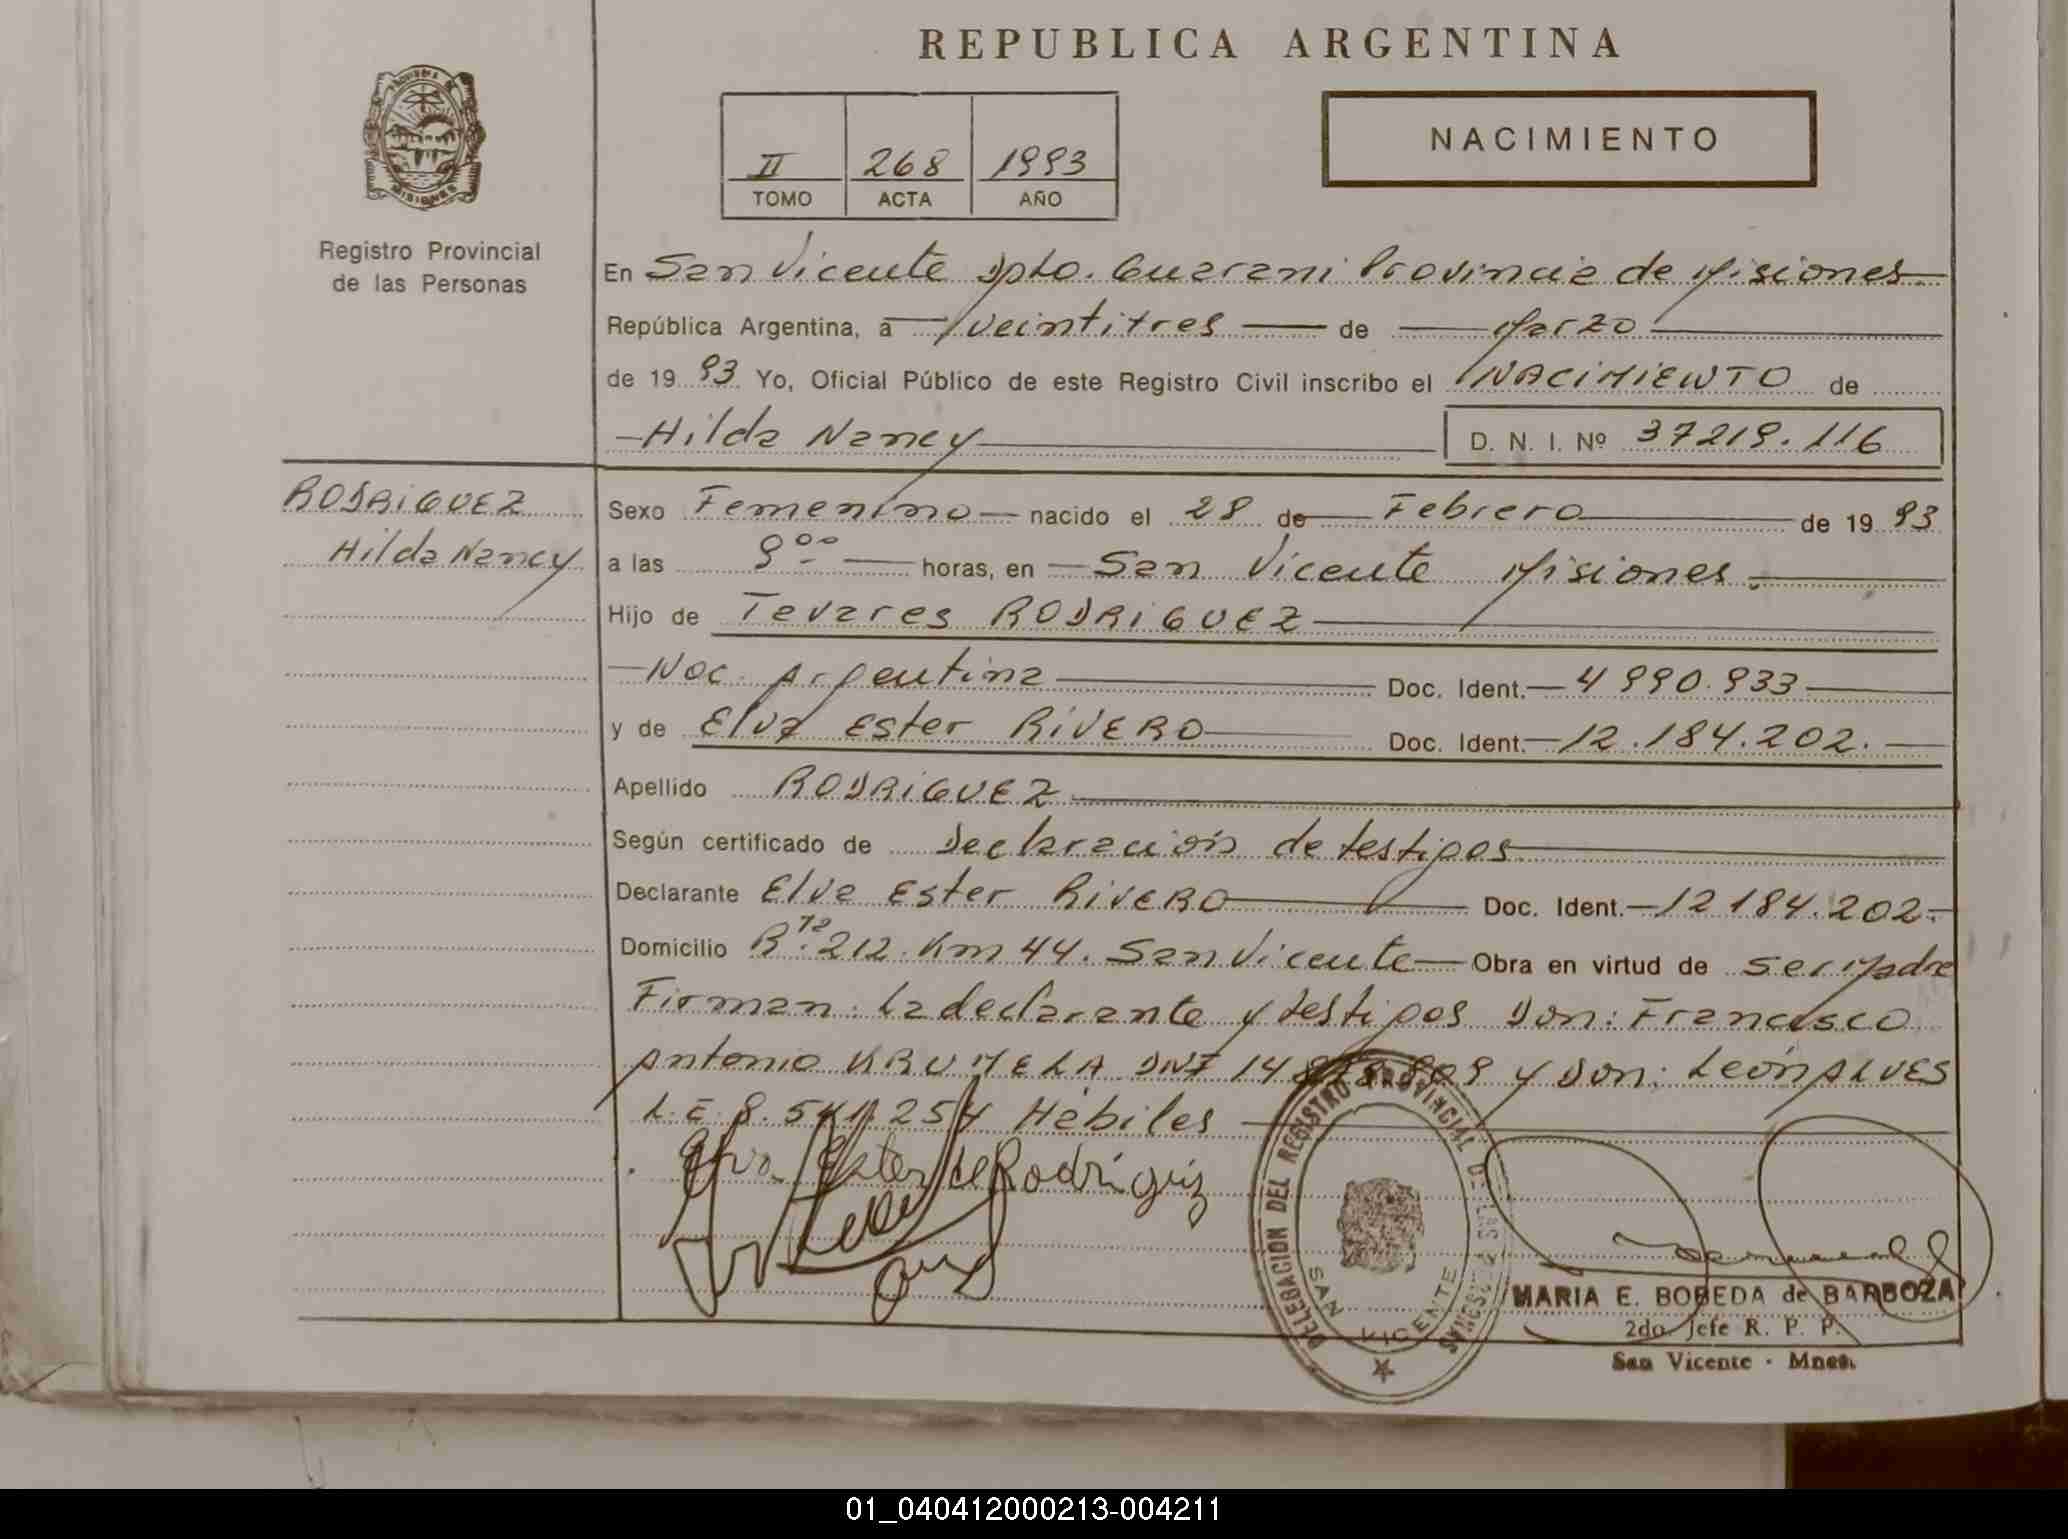 REPUBLICA ARGENTINA
PROVINCIA DE MISIONES
Registro Provincial
de las Personas
II 268 1993
TOMO ACTA AÑO
NACIMIENTO
En San Vicente Dpto. Guarani Provincia de Misiones
República Argentina, a veintitres de Marzo
de 19 93 Yo, Oficial Público de este Registro Civil inscribo el NACIMIENTO de
Hilda Nancy D. N. I. Nº 37219.116
RODRIGUEZ
Hilda Nancy
Sexo Femenino nacido el 28 de Febrero de 19 93
a las 9 00 horas, en San Vicente Misiones.
Hijo de Tevares RODRIGUEZ
Nac. Argentina Doc. Ident. 4 990.933
y de Elva Ester RIVERO Doc. Ident. 12.184.202.
Apellido RODRIGUEZ
Según certificado de Declaración de testigos
Declarante Elva Ester RIVERO Doc. Ident. 12 184.202.
Domicilio R. 212. Km 44. San Vicente Obra en virtud de ser Madre
Firman: La declarante y testigos Don: Francisco
Antonio KRUMELA DNI 14 y Don: León ALVES
L.E. 8.541.254 Hábiles
Elva Ester de Rodríguez
DELEGACION DEL REGISTRO PROVINCIAL DE LAS PERSONAS
SAN VICENTE
MARIA E. BOBEDA de BARBOZA
2do. Jefe R. P. P.
San Vicente - Mnes.
01_040412000213-004211